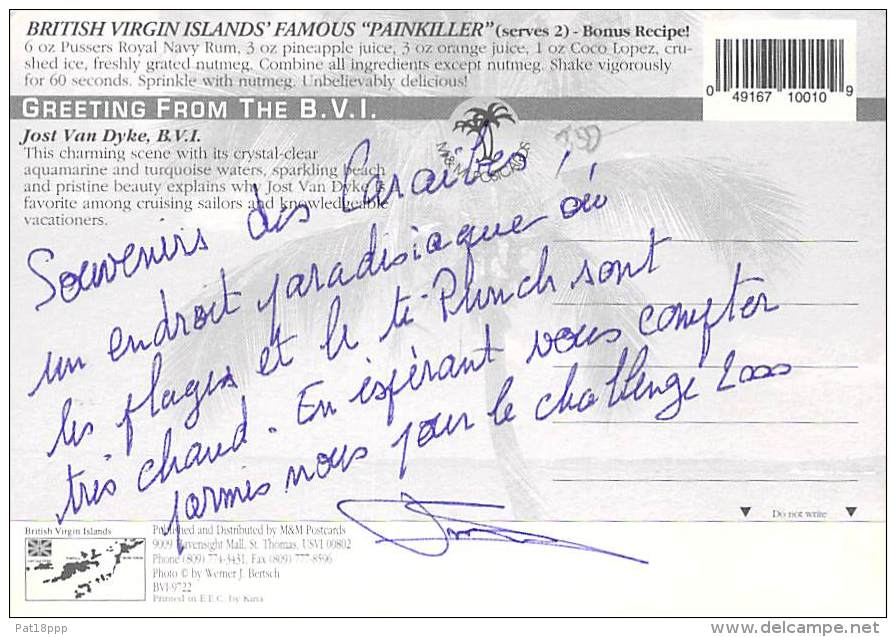 BRITISH VIRGIN ISLANDS' FAMOUS "PAINKILLER" (serves 2) - Bonus Recipe!
6 oz Pussers Royal Navy Rum, 3 oz pineapple juice, 3 oz orange juice, 1 oz Coco Lopez, cru-
shed ice, freshly grated nutmeg. Combine all ingredients except nutmeg. Shake vigorously
for 60 seconds. Sprinkle with nutmeg. Unbelievably delicious!
0 49167 10010 9
GREETING FROM THE B.V.I.
M&M POSTCARDS
Jost Van Dyke, B.V.I.
This charming scene with its crystal-clear
aquamarine and turquoise waters, sparkling beach
and pristine beauty explains why Jost Van Dyke is a
favorite among cruising sailors and knowledgeable
vacationers.
Souvenirs des Caraïbes,
un endroit paradisiaque où
les plages et le ti-Punch sont
très chaud. En espérant vous compter
parmis nous pour le challenge 2000
Do not write
British Virgin Islands
Published and Distributed by M&M Postcards
9009 Havensight Mall, St. Thomas, USVI 00802
Phone (809) 774-3431, Fax (809) 777-8596
Photo © by Werner J. Bertsch
BVI-9722
Printed in E.E.C. by Kina
Pat18ppp
www.delcampe.net